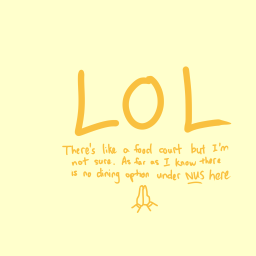 LOL
There's like a food court but I'm
not sure. As far as I know there
is no dining option under NUS here